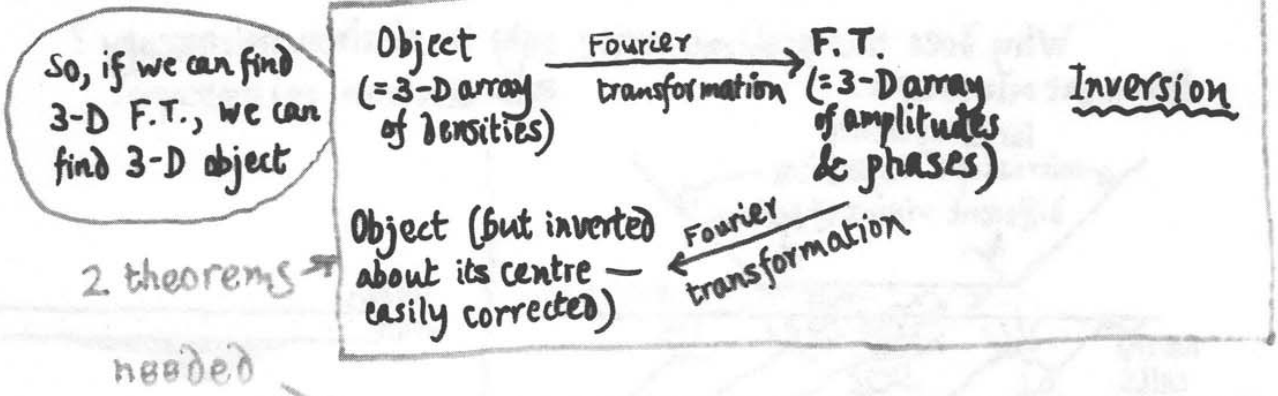 So, if we can find
3-D F.T., we can
find 3-D object
Object
(=3-D array
of densities)
Fourier
transformation
F.T.
(=3-D array
of amplitudes
& phases)
Inversion
Object (but inverted
about its centre —
easily corrected)
Fourier
transformation
2 theorems
needed